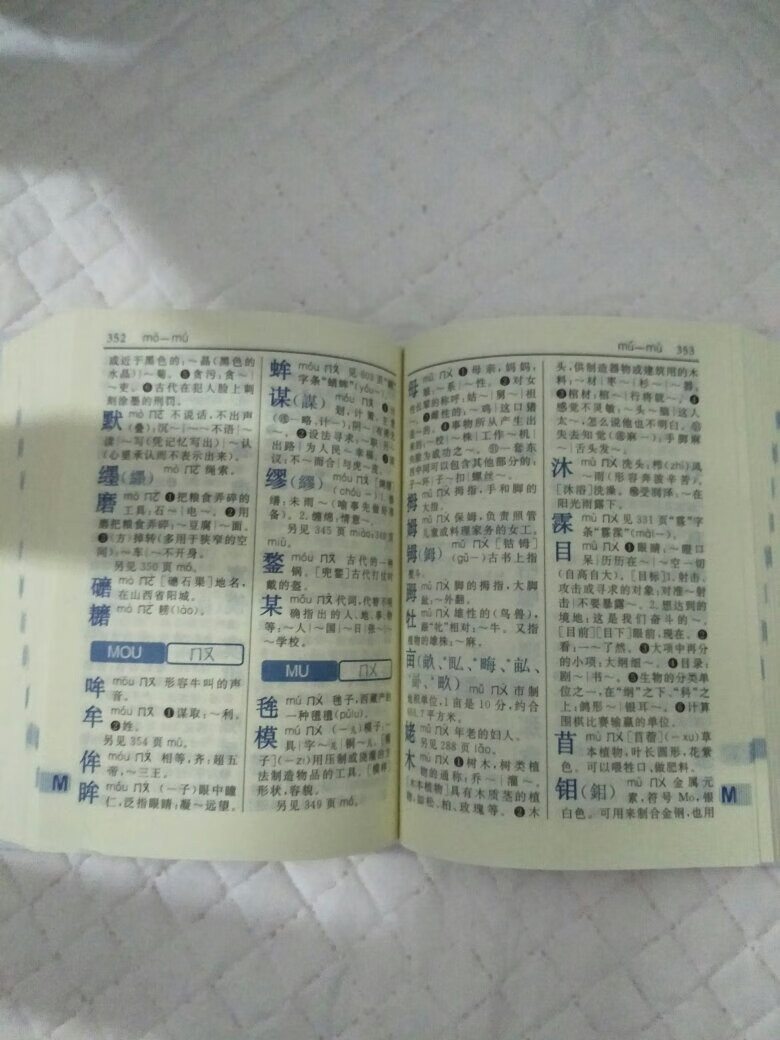 352 mò—mú
或近于黑色的：～晶(黑色的
水晶)|～菊。❺贪污：贪～
～吏。❻古代在犯人脸上刺
刻涂墨的刑罚。
默 mò ㄇㄛˋ 不说话，不出声
(叠)：沉～|～～不语|～
读|～写(凭记忆写出)|～认
(心里承认而不表示出来)。
纆(纆) mò ㄇㄛˋ 绳索。
磨 mò ㄇㄛˋ ❶把粮食弄碎的
工具：石～|电～。❷用
磨把粮食弄碎：～豆腐|～面。
❸(方)掉转(多用于狭窄的空
间)：～车|～不开身。
另见 350 页 mó。
礳 mò ㄇㄛˋ [礳石渠]地名，
在山西省阳城。
耱 mò ㄇㄛˋ 耢(lào)。
MOU ㄇㄡ
哞 mōu ㄇㄡ 形容牛叫的声
音。
牟 móu ㄇㄡˊ ❶谋取：～利。
❷姓。
另见 354 页 mù。
侔 móu ㄇㄡˊ 相等，齐：超五
帝，～三王。
眸 móu ㄇㄡˊ (一子)眼中瞳
仁，泛指眼睛：凝～远望。
M
蛑 móu ㄇㄡˊ 见 603 页
字条“蝤蛑”(yóu—)。
谋(謀) móu ㄇㄡˊ
划，计策，主意
(㊀—略、计—)：阴～|有勇无
～。❷设法寻求：～职|
出路|为人民～幸福。❸商
议：不～而合|与虎～皮。
缪(繆) móu ㄇㄡˊ [绸缪]
(chóu—)1.
缮：未雨～(喻事先做好准
备)。2.缠绵：情意～。
另见 345 页 miào；349 页
miù。
鍪 móu ㄇㄡˊ 古代的一种
锅。[兜鍪]古代打仗时
戴的盔。
某 mǒu ㄇㄡˇ 代词，代替不明
确指出的人、地、事、物
等：～人|～国|～日|张～|～～
～学校。
MU ㄇㄨ
毪 mú ㄇㄨˊ 毪子，西藏产的
一种氆氇(pǔlu)。
模 mú ㄇㄨˊ (一儿)模子：～
具|字～儿|铜～儿。[模
子](—zi)用压制或浇灌的方
法制造物品的工具。[模样]
形状，容貌。
另见 349 页 mó。
mú—mù 353
母 mǔ ㄇㄨˇ ❶母亲，妈妈，
娘：～系|～性。❷对女
性长辈的称呼：姑～|舅～|祖
～。❸雌性的：～鸡|这口猪
是～的。❹事物所从产生出
来的：～校|～株|工作～机|
失败为成功之～。㊀一套东
西中间可以包含其他部分的：
子～环|子～扣|螺丝～。
拇 mǔ ㄇㄨˇ 拇指，手和脚的
大指。
姆 mǔ ㄇㄨˇ 保姆，负责照管
儿童或料理家务的女工。
钼(鉧) mǔ ㄇㄨˇ [钴鉧]
(gǔ—)古书上指
熨斗。
踇 mǔ ㄇㄨˇ 脚的拇指，大脚
趾：～外翻。
牡 mǔ ㄇㄨˇ 雄性的(鸟兽，
跟“牝”相对)：～牛。又指
植物的雄株：～麻。
亩(畝、畮、畆、畂) mǔ ㄇㄨˇ 市制
地积单位，1亩是10分，约合
666.7平方米。
姥 mǔ ㄇㄨˇ 年老的妇人。
另见 288 页 lǎo。
木 mù ㄇㄨˋ ❶树木，树类植
物的通称：乔～|灌～。
[木本植物]具有木质茎的植
物，如松、柏、玫瑰等。❷木
头，供制造器物或建筑用的木
料：～材|枣～|杉～|～器。
❸棺材：棺～|行将就～。❹
感觉不灵敏：～头～脑|这人
太～，怎么说他也不明白。㊀
失去知觉(㊀麻—)：手脚麻～
|舌头发～。
沐 mù ㄇㄨˋ 洗头：栉(zhì)风
～雨(形容奔波辛苦)。
[沐浴]洗澡。㊀受润泽：～在
阳光雨露下。
霂 mù ㄇㄨˋ 见 331 页“霡”字
条“霡霂”(mài—)。
目 mù ㄇㄨˋ ❶眼睛：～瞪口
呆|历历在～|～空一切
(自高自大)。[目标]1.射击、
攻击或寻求的对象：对准～射
击|不要暴露～。2.想达到的
境地：这是我们奋斗的～。
[目前][目下]眼前，现在。❷
看：一～了然。❸大项中再分
的小项：大纲细～。❹目录：
剧～|书～。❺生物的分类单
位之一，在“纲”之下、“科”之
上：鸽形～|银耳～。❻计算
围棋比赛输赢的单位。
苜 mù ㄇㄨˋ [苜蓿](—xu)草
本植物，叶长圆形，花紫
色。可以喂牲口，做肥料。
钼(鉬) mù ㄇㄨˋ 金属元
素，符号 Mo，银
白色。可用来制合金钢，也用
M